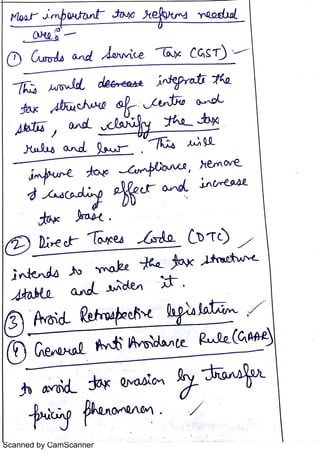 Most important tax reforms needed
are :-
① Goods and Service Tax (GST)
This would decrease integrate the
tax structure of centre and
states, and clarify the tax
rules and law. This will
improve tax compliance, remove
cascading effect and increase
tax base.
② Direct Taxes Code (DTC)
intends to make the tax structure
stable and widen it.
③ Avoid Retrospective legislation
④ General Anti Avoidance Rule (GAAR)
to avoid tax evasion by transfer
pricing phenomenon.
Scanned by CamScanner